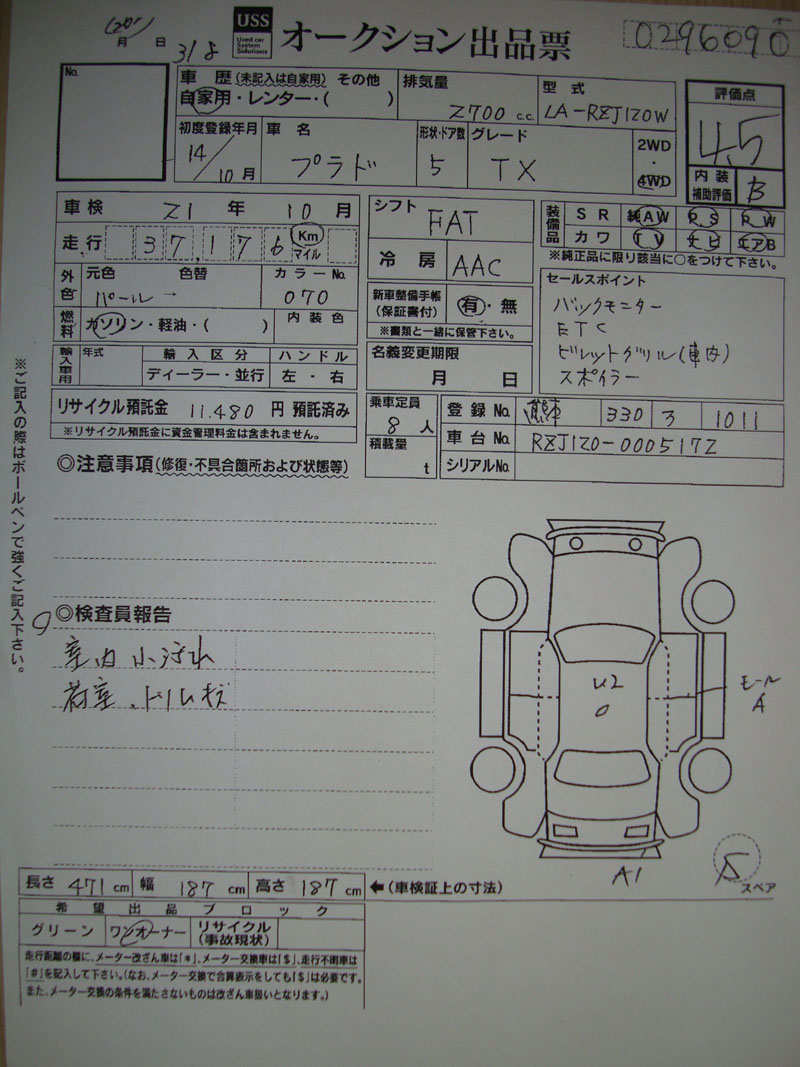 USS
Used car
System
Solutions
オークション出品票
0296090
月 日
No.
車歴(未記入は自家用) その他
自家用・レンター・( )
排気量
2700 c.c.
型式
LA-RZJ120W
評価点
4.5
初度登録年月
14/10月
車名
プラド
形状・ドア数
5
グレード
TX
2WD
・
4WD
内装
補助評価
B
車検 21年 10月
シフト
FAT
装備品
SR 純AW P.S P.W
カワ TV ナビ エアB
※純正品に限り該当に○をつけて下さい。
走行 37,176 Km
マイル
冷房
AAC
セールスポイント
バックモニター
ETC
ビレットグリル(車内)
スポイラー
外色
元色 色替
パール→
カラーNo.
070
新車整備手帳
(保証書付)
有・無
※書類と一緒に保管下さい。
燃料
ガソリン・軽油・( )
内装色
名義変更期限
月 日
輸入車用
年式
輸入区分
ディーラー・並行
ハンドル
左・右
リサイクル預託金 11,480 円 預託済み
※リサイクル預託金に資金管理料金は含まれません。
乗車定員
8人
積載量
t
登録No. 330 1011
車台No. RZJ120-0005172
シリアルNo.
◎注意事項(修復・不具合箇所および状態等)
※ご記入の際はボールペンで強くご記入下さい。
◎検査員報告
室内小汚れ
荷室、トリムキズ
U2
モール
A
A1
スペア
長さ 471 cm 幅 187 cm 高さ 187 cm ←(車検証上の寸法)
希望出品ブロック
グリーン ワンオーナー リサイクル
(事故現状)
走行距離の欄に、メーター改ざん車は「*」、メーター交換車は「$」、走行不明車は
「#」を記入して下さい。(なお、メーター交換で合算表示をしても「$」は必要です。
また、メーター交換の条件を満たさないものは改ざん車扱いとなります。)